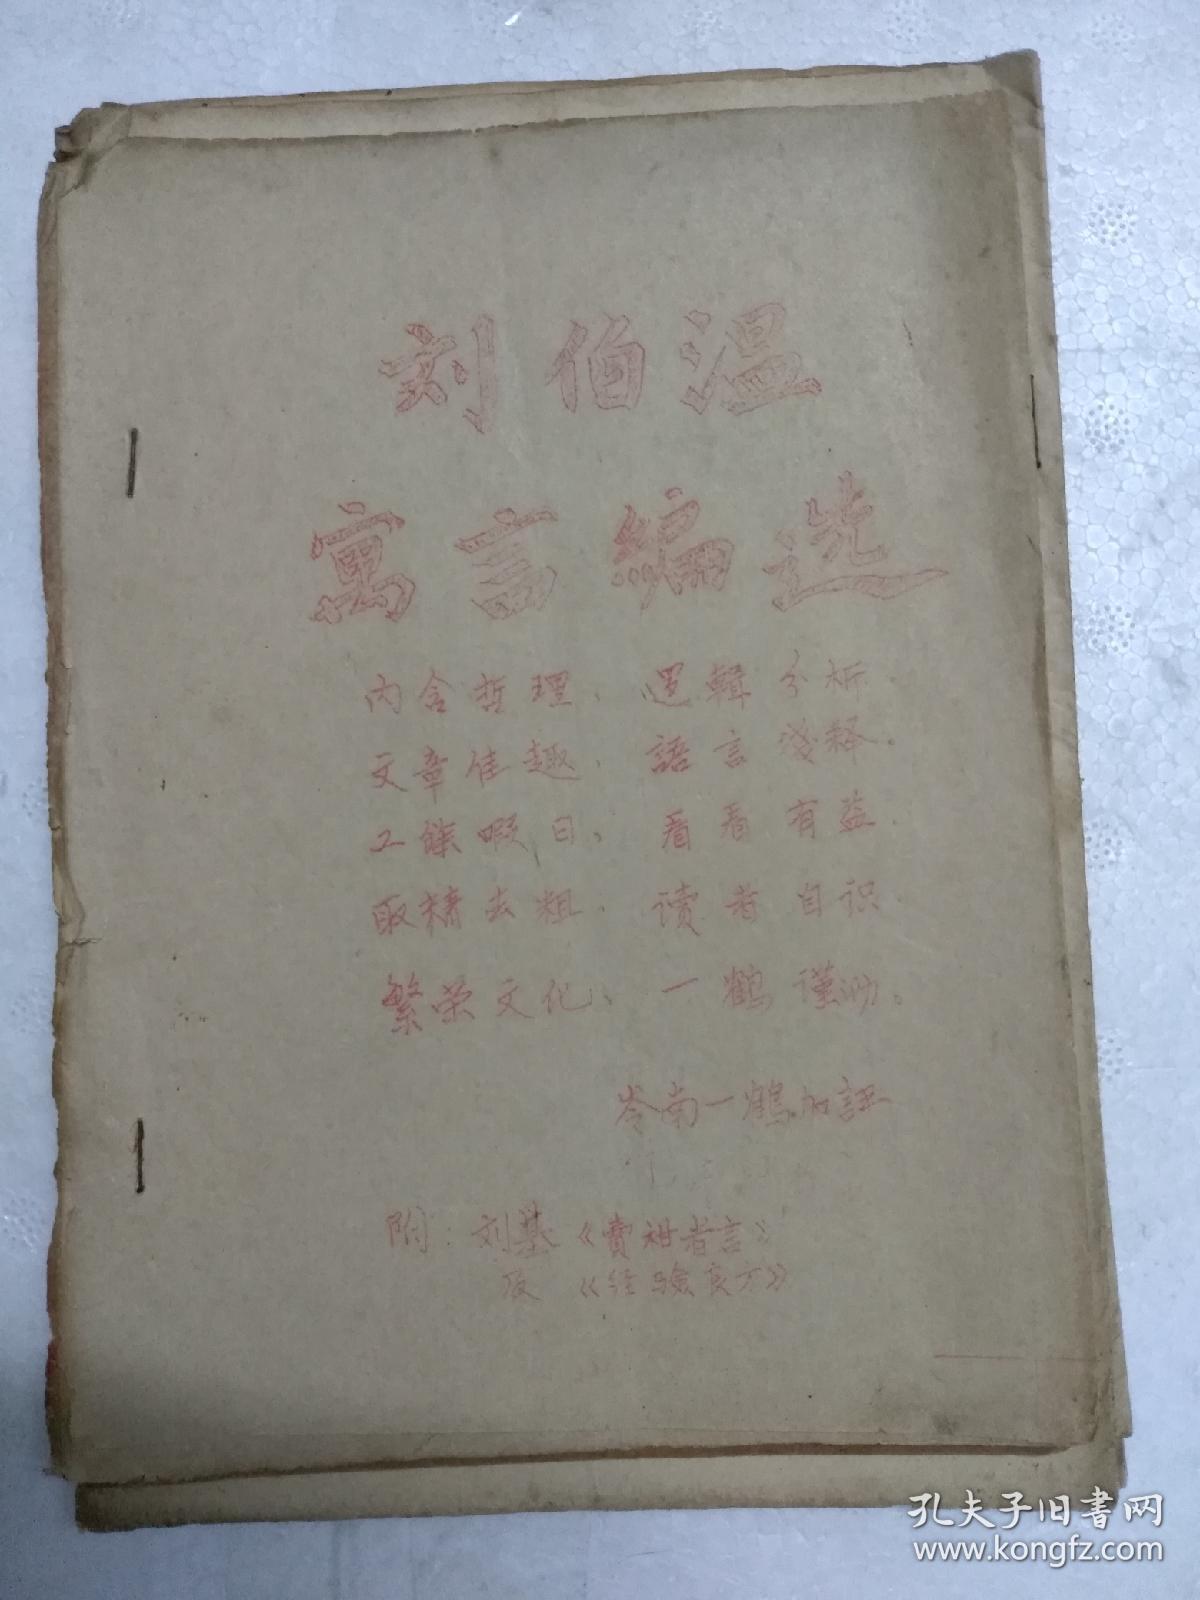 刘伯温
寓言编选
内含哲理、逻輯分析.
文章佳趣、語言淺释.
工餘暇日、看看有益.
取精去粗、读者自识.
繁荣文化、一鹤谨泐。
岺南一鹤加註
附:刘基《賣柑者言》
及《经驗良方》
孔夫子旧书网
www.kongfz.com